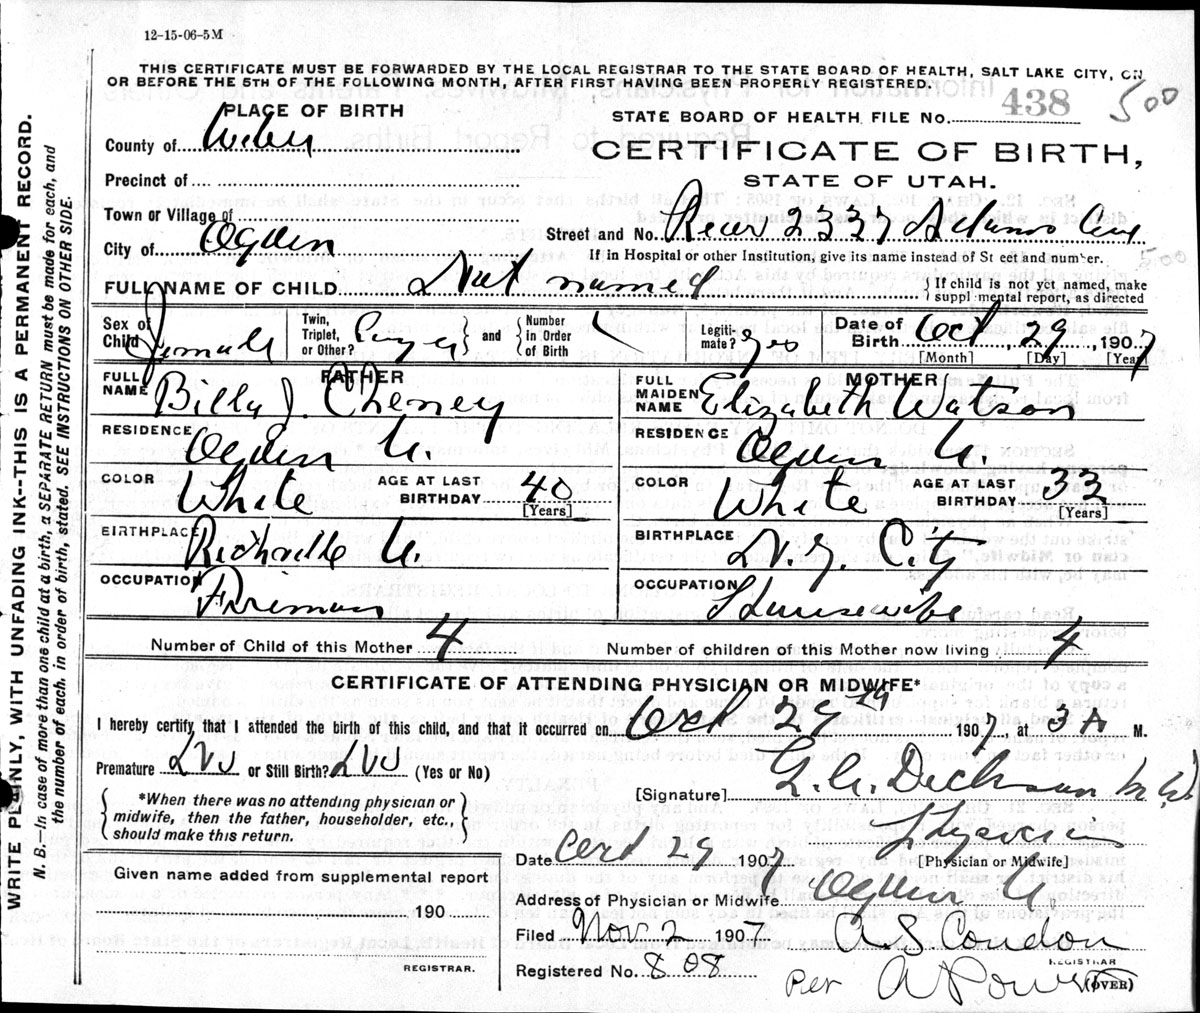 12-15-06-5M
THIS CERTIFICATE MUST BE FORWARDED BY THE LOCAL REGISTRAR TO THE STATE BOARD OF HEALTH, SALT LAKE CITY, ON
OR BEFORE THE 5TH OF THE FOLLOWING MONTH, AFTER FIRST HAVING BEEN PROPERLY REGISTERED.
500
PLACE OF BIRTH
STATE BOARD OF HEALTH FILE No. 438
County of Weber
CERTIFICATE OF BIRTH,
Precinct of
STATE OF UTAH.
Town or Village of
City of Ogden
Street and No. Rear 2337 Adams Ave
If in Hospital or other Institution, give its name instead of St eet and number.
500
FULL NAME OF CHILD Not named
{ If child is not yet named, make
suppl mental report, as directed
Sex of Child Female
Twin, Triplet, or Other? } and { Number in Order of Birth
Legiti-mate? yes
Date of Birth Oct, 29, 1907
[Month] [Day] [Year]
FATHER
MOTHER
FULL NAME Billy J. Cheney
FULL MAIDEN NAME Elizabeth Watson
RESIDENCE Ogden U.
RESIDENCE Ogden U
COLOR White AGE AT LAST BIRTHDAY 40 [Years]
COLOR White AGE AT LAST BIRTHDAY 33 [Years]
BIRTHPLACE Richville U.
BIRTHPLACE N.Y. City
OCCUPATION Fireman
OCCUPATION Housewife
Number of Child of this Mother 4
Number of children of this Mother now living 4
CERTIFICATE OF ATTENDING PHYSICIAN OR MIDWIFE*
I hereby certify that I attended the birth of this child, and that it occurred on Oct 29 1907, at 3 A M.
Premature No or Still Birth? No (Yes or No)
[Signature] Dickson M.D.
{ *When there was no attending physician or
midwife, then the father, householder, etc.,
should make this return. }
Physician
[Physician or Midwife]
Date Oct 29 1907
Given name added from supplemental report
Address of Physician or Midwife Ogden U.
190
Filed Nov. 2 1907 A. S. Condon
REGISTRAR
REGISTRAR.
Registered No. 808
Per A Powers
(OVER)
WRITE PLAINLY, WITH UNFADING INK--THIS IS A PERMANENT RECORD.
N. B.—In case of more than one child at a birth, a SEPARATE RETURN must be made for each, and
the number of each, in order of birth, stated. SEE INSTRUCTIONS ON OTHER SIDE.